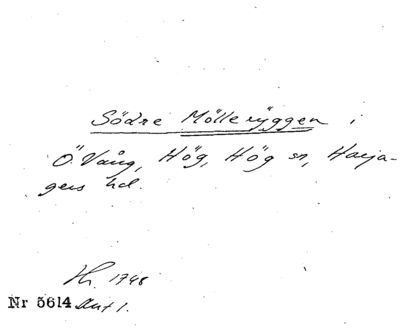 Södre Mölleryggen i
Ö. Vång, Hög, Hög sn, Harja-
gers hd.
Hr. 1748
Nr 5614 Akt 1.